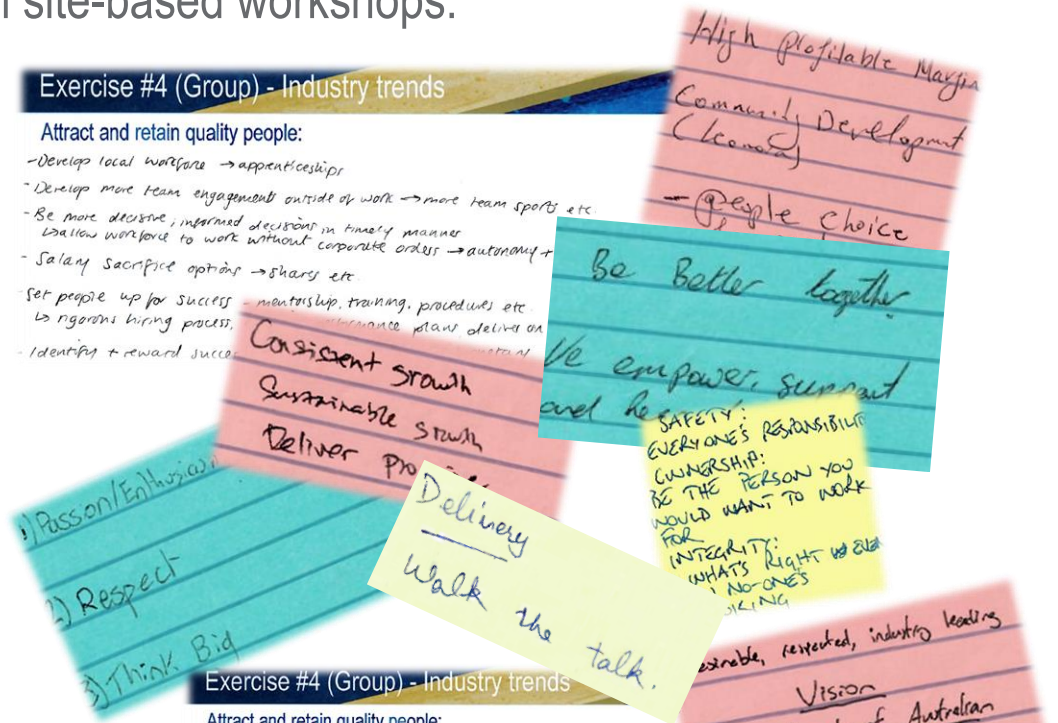 site-based workshops.
Exercise #4 (Group) - Industry trends
Attract and retain quality people:
-Develop local workforce → apprenticeships
- Develop more team engagements outside of work → more team sports etc.
- Be more decisive; informed decisions in timely manner
↳ allow workforce to work without corporate orders → autonomy +
- Salary sacrifice options → shares etc
Set people up for success - mentorship, training, procedures etc.
↳ rigorous hiring process, plans deliver on
- Identify + reward
High Profitable Margin
Community Development
- People choice
Be Better together
We empower, support
and
Consistent growth
Sustainable growth
Deliver
SAFETY:
EVERYONE'S RESPONSIBILIT
OWNERSHIP:
BE THE PERSON YOU
WOULD WANT TO WORK
FOR
INTEGRITY:
WHAT'S RIGHT EVEN
NO-ONE'S
1) Passion/Enthusiasm
2) Respect
3) Think Big
Delivery
Walk the talk.
respected, industry leading
Vision
of Australian
Exercise #4 (Group) - Industry trends
Attract and retain quality people: